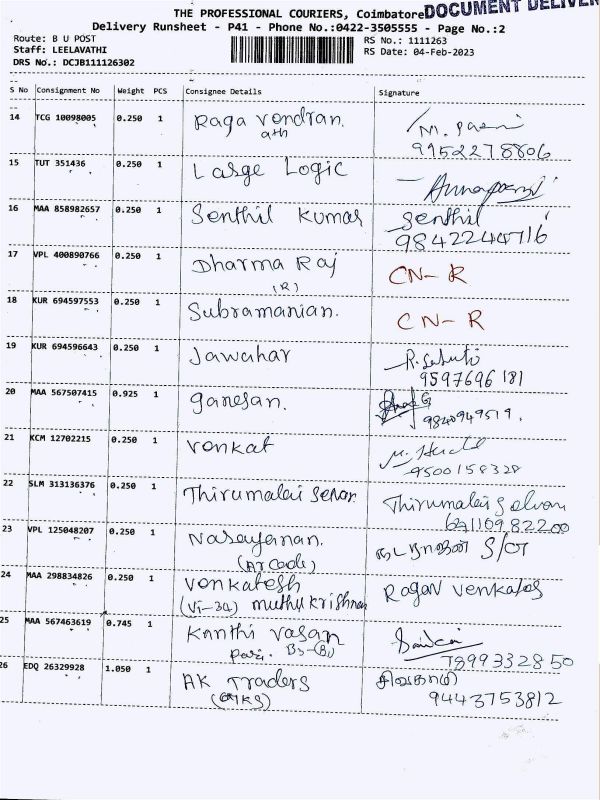 THE PROFESSIONAL COURIERS, Coimbatore DOCUMENT DELIVER
Delivery Runsheet - P41 - Phone No.:0422-3505555 - Page No.:2
Route: B U POST
Staff: LEELAVATHI
DRS No.: DCJB111126302
RS No.: 1111263
RS Date: 04-Feb-2023
S No Consignment No Weight PCS Consignee Details Signature
14 TCG 10098005 0.250 1 Raga vendran.
ath
9952278806
15 TUT 351436 0.250 1 Large Logic
16 MAA 858982657 0.250 1 Senthil Kumar Senthil
9842244716
17 VPL 400890766 0.250 1 Dharma Raj CN-R
(R)
18 KUR 694597553 0.250 1 Subramanian. CN-R
19 KUR 694596643 0.250 1 Jawahar
9597696 181
20 MAA 567507415 0.925 1 ganesan.
9840949519.
21 KCM 12702215 0.250 1 Venkat
9500158328
22 SLM 313136376 0.250 1 Thirumalai Selvan Thirumalai Selvan
23 VPL 125048207 0.250 1 Narayanan. S/O
(Arcade)
24 MAA 298834826 0.250 1 Venkatesh Ragav Venkatesh
(Vi-3a) muthu krishnan
25 MAA 567463619 0.745 1 Kanthi Vasan
7899332850
26 EDQ 26329928 1.050 1 AK Traders சிவகாமி
9443753812